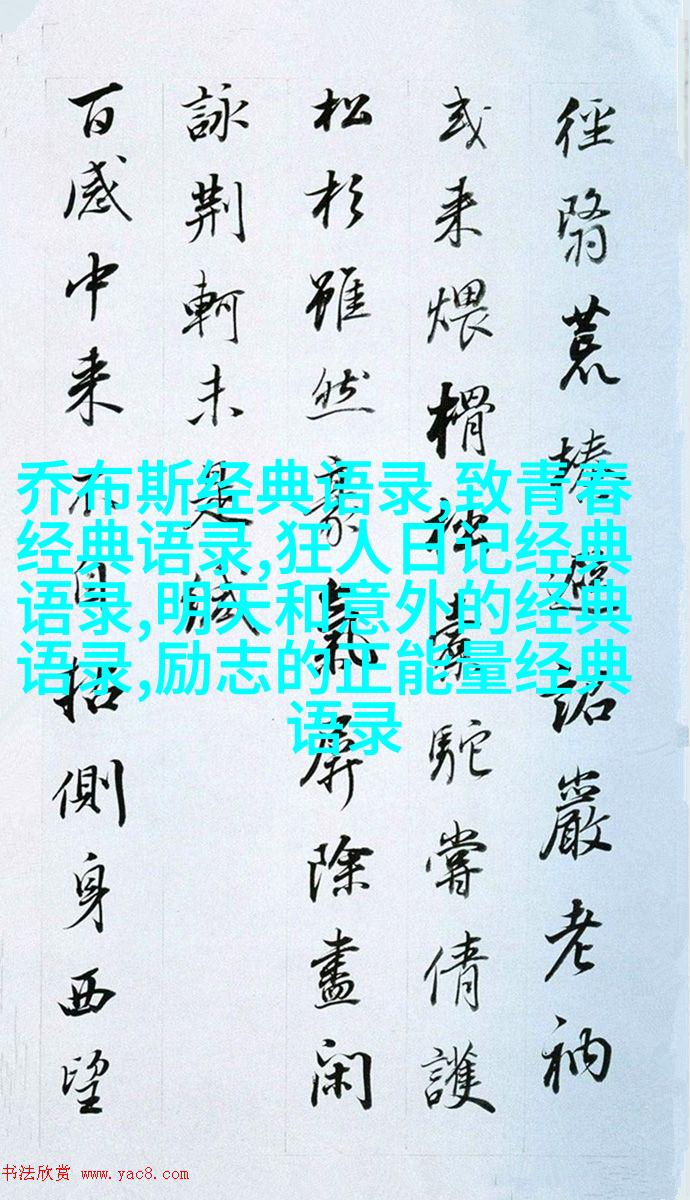 徑翳荒榛詔嚴老衲
或来煨榾柮橐駝嘗倩護
松杉雖然豪氣屏除盡闲
詠荆軻未是減
百感中来不自招側身西望
乔布斯经典语录,致青春
经典语录,狂人日记经典
语录,明天和意外的经典
语录,励志的正能量经典
语录
书法欣赏 www.yac8.com